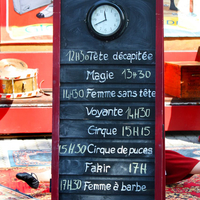 12H30 Tête décapitée
Magie 13H30
14H30 Femme sans tête
Voyante 14H30
Cirque 15H15
15H30 Cirque de puces
Fakir 17H
17H30 Femme à barbe